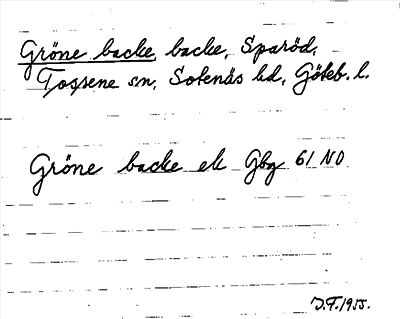 Gröne backe, backe, Sparöd,
Tossene sn, Sotenäs hd, Göteb. l.
Gröne backe ek Gbg 61 NO
D.F. 1955.